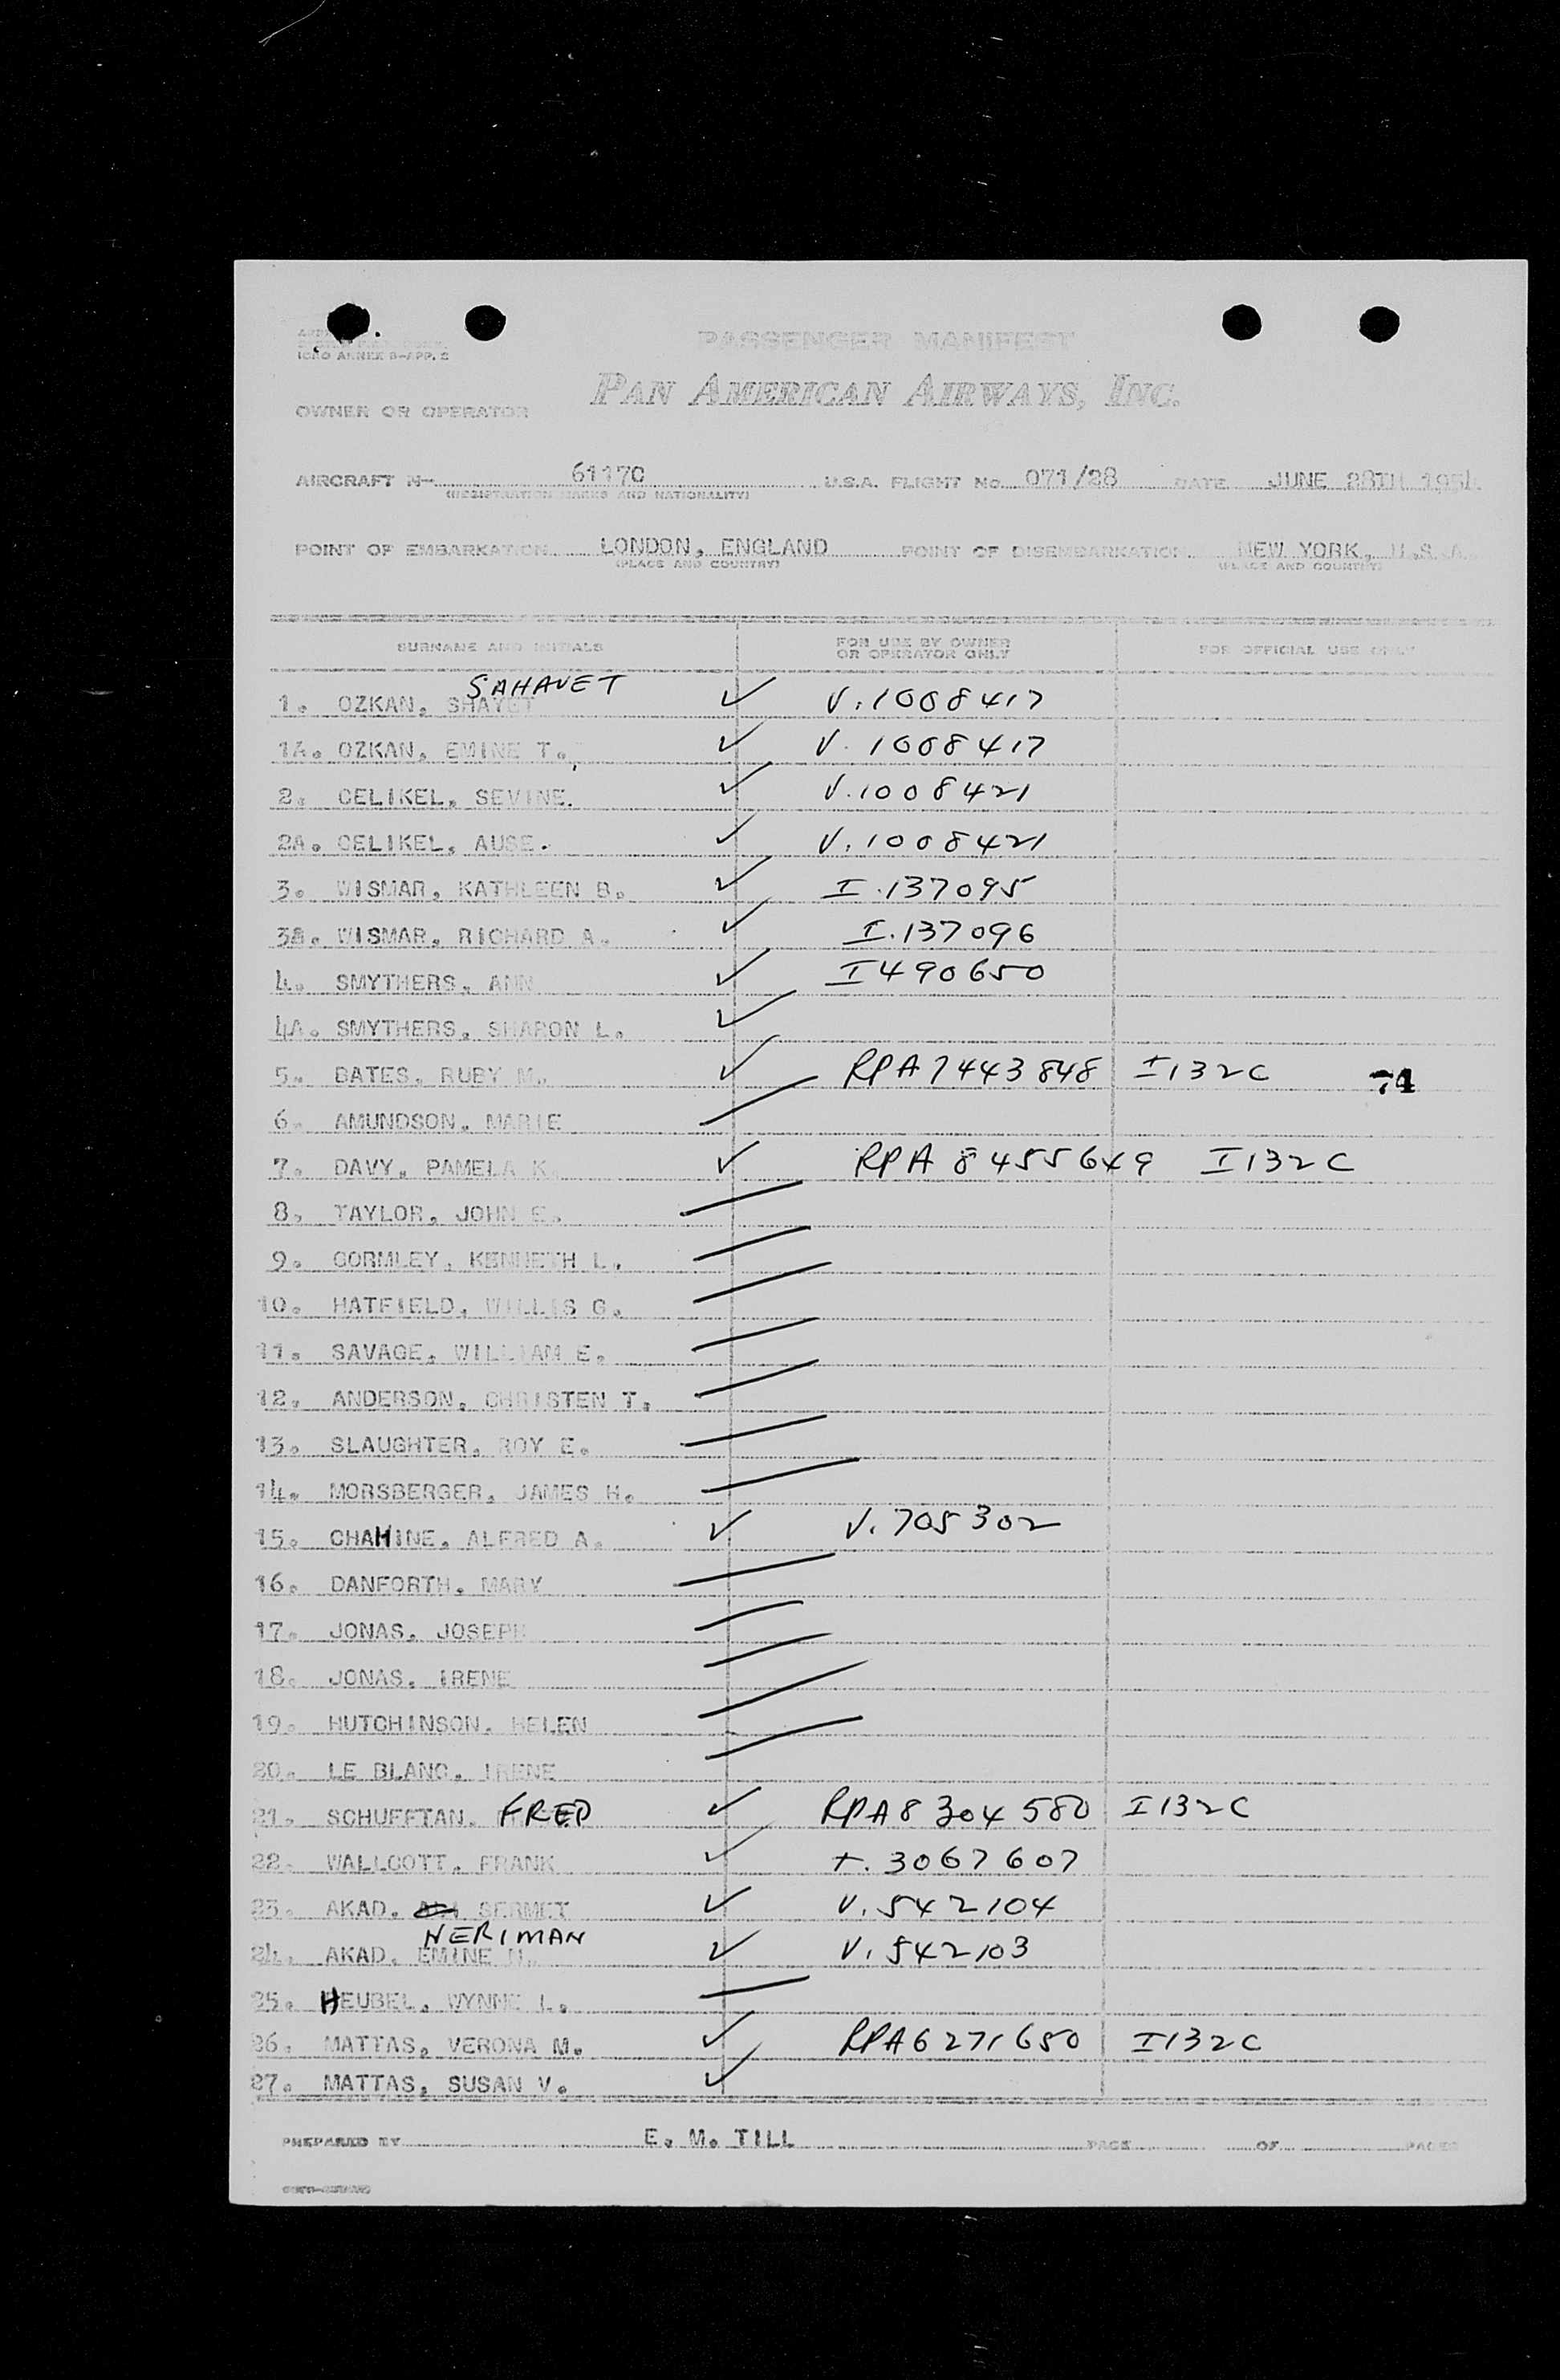 ICAO ANNEX 9-APP. 2
PASSENGER MANIFEST
OWNER OR OPERATOR PAN AMERICAN AIRWAYS, INC.
AIRCRAFT N- 61170 U.S.A. FLIGHT No. 071/28 DATE JUNE 28TH 1954
(REGISTRATION MARKS AND NATIONALITY)
POINT OF EMBARKATION LONDON, ENGLAND POINT OF DISEMBARKATION NEW YORK, U.S.A.
(PLACE AND COUNTRY) (PLACE AND COUNTRY)
SURNAME AND INITIALS FOR USE BY OWNER OR OPERATOR ONLY FOR OFFICIAL USE ONLY
SAHAVET
1. OZKAN, SHAYET ✓ V.1008417
1A. OZKAN, EMINE T. ✓ V. 1008417
2. CELIKEL, SEVINE. ✓ V.1008421
2A. CELIKEL, AUSE. ✓ V.1008421
3. WISMAR, KATHLEEN B. ✓ I.137095
3A. WISMAR, RICHARD A. ✓ I.137096
4. SMYTHERS, ANN ✓ I490650
4A. SMYTHERS, SHARON L. ✓
5. BATES, RUBY M. ✓ RPA7443848 I132C 74
6. AMUNDSON, MARIE
7. DAVY, PAMELA K. ✓ RPA 8455649 I132C
8. TAYLOR, JOHN E.
9. GORMLEY, KENNETH L.
10. HATFIELD, WILLIS G.
11. SAVAGE, WILLIAM E.
12. ANDERSON, CHRISTEN T.
13. SLAUGHTER, ROY E.
14. MORSBERGER, JAMES H.
15. CHAHINE, ALFRED A. ✓ V.705302
16. DANFORTH, MARY
17. JONAS, JOSEPH
18. JONAS, IRENE
19. HUTCHINSON, HELEN
20. LE BLANC, IRENE
21. SCHUFFTAN, FRED ✓ RPA8304580 I132C
22. WALLCOTT, FRANK ✓ t. 3067607
23. AKAD, SERMET ✓ V.542104
NERIMAN
24. AKAD, EMINE N. ✓ V.542103
25. HEUBEL, WYNNE L.
26. MATTAS, VERONA M. ✓ RPA6271650 I132C
27. MATTAS, SUSAN V. ✓
PREPARED BY E. M. TILL PAGE OF PAGES